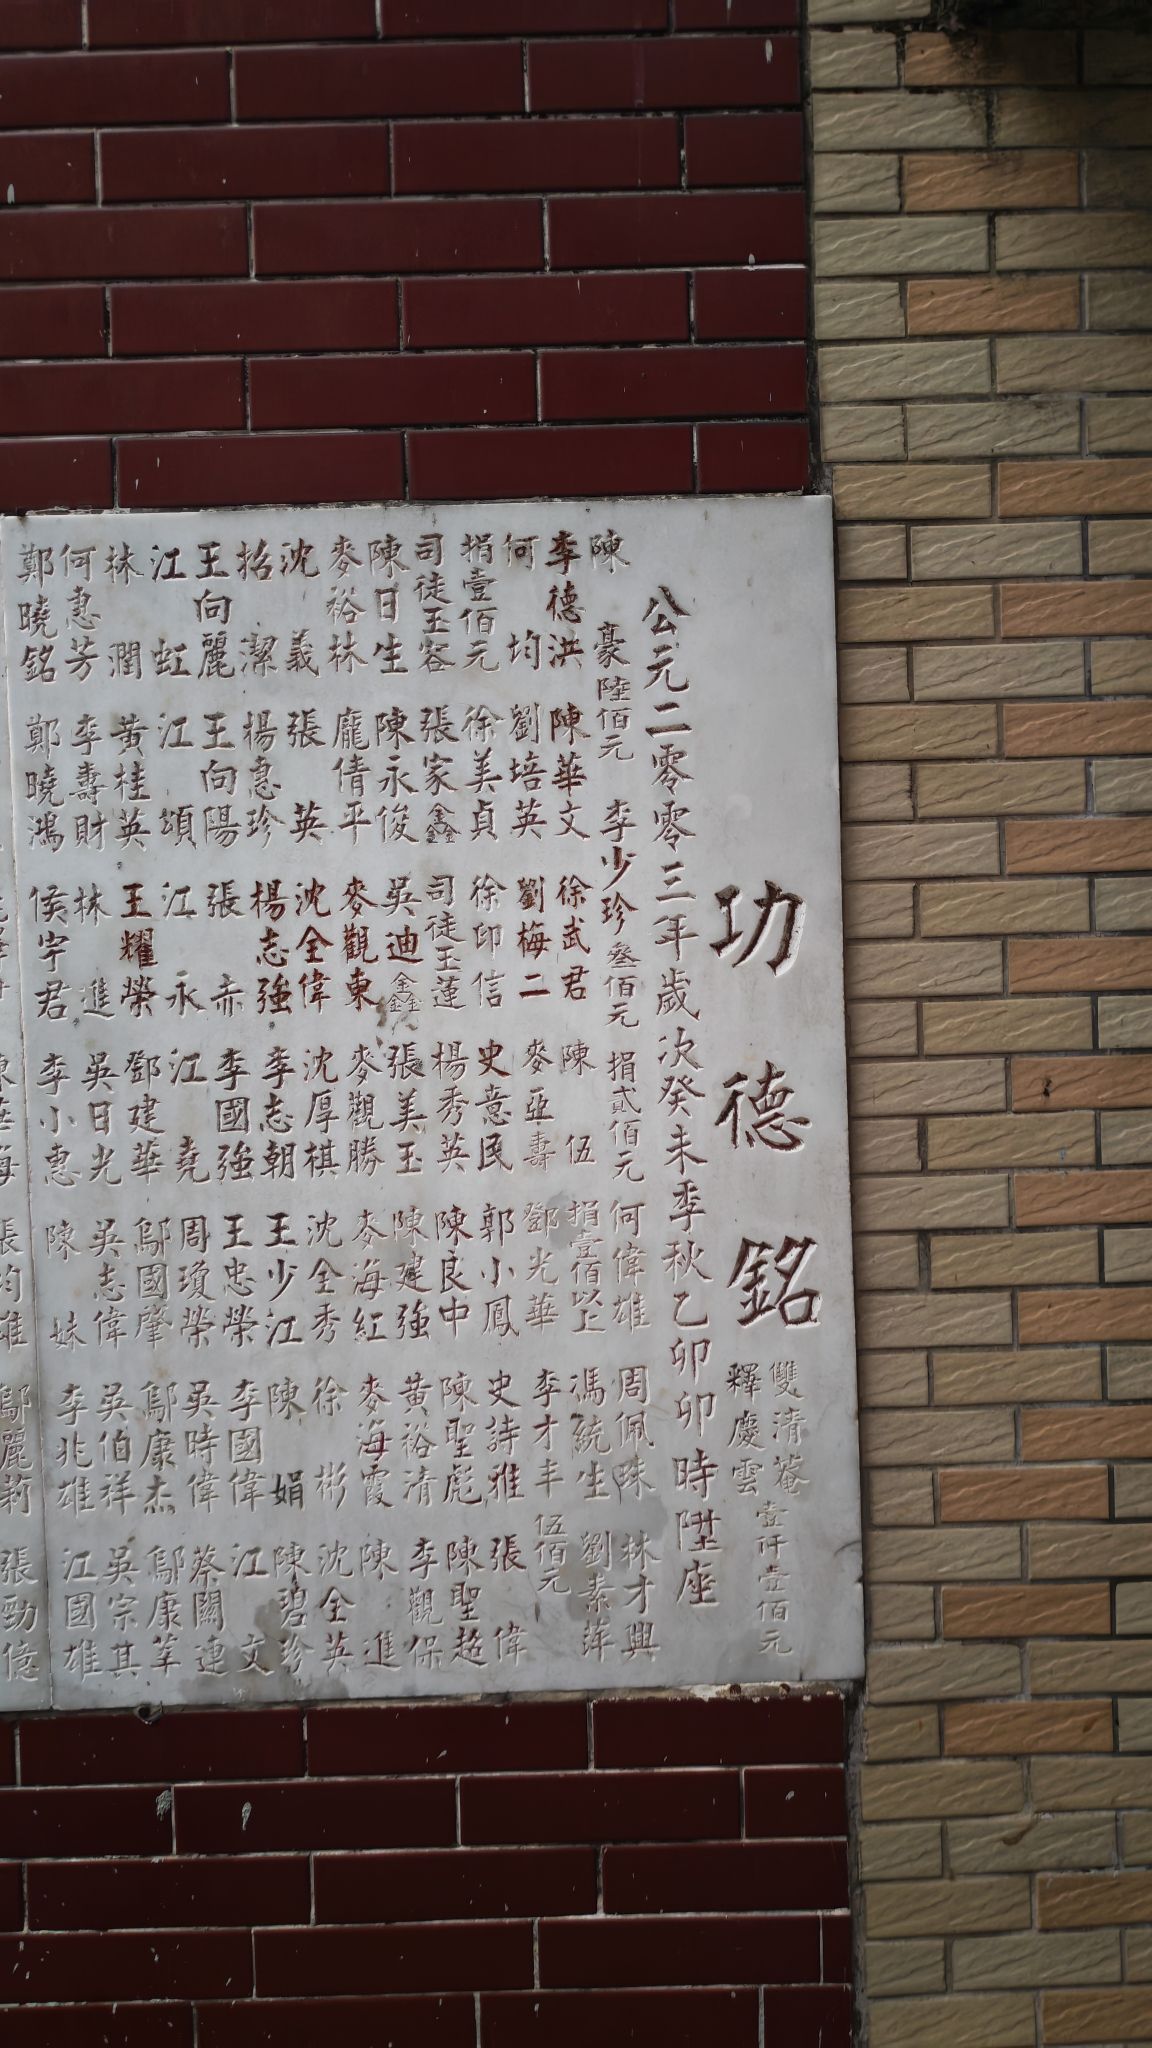 功德銘
雙清菴
釋慶雲
壹仟壹佰元
公元二零零三年歲次癸未季秋乙卯卯時陞座
陳豪陸佰元 李少珍叁佰元 捐貳佰元 何偉雄 周佩珠 林才興
李德洪 陳華文 徐武君 陳伍 捐壹佰以上 馮統生 劉素萍
何均 劉培英 劉梅二 麥亞壽 鄧光華 李才丰 伍佰元
捐壹佰元 徐美貞 徐印信 史意民 郭小鳳 史詩雅 張偉
司徒玉容 張家鑫 司徒玉蓮 楊秀英 陳良中 陳聖彪 陳聖超
陳日生 陳永俊 吳迪鑫 張美玉 陳建強 黃裕清 李觀保
麥裕林 龐倩平 麥觀東 麥觀勝 麥海紅 麥海霞 陳進
沈義 張英 沈全偉 沈厚棋 沈全秀 徐彬 沈全英
招潔 楊惠珍 楊志強 李志朝 王少江 陳娟 陳碧珍
王向麗 王向陽 張赤 李國強 王忠榮 李國偉 江文
江虹 江頌 江永 江堯 周瓊榮 吳時偉 蔡關連
林潤 黃桂英 王耀榮 鄧建華 鄔國肇 鄔康杰 鄔康莘
何惠芳 李壽財 林進 吳日光 吳志偉 吳伯祥 吳宗其
鄭曉銘 鄭曉鴻 侯宇君 李小惠 陳妹 李兆雄 江國雄
鄔麗莉 張勁億